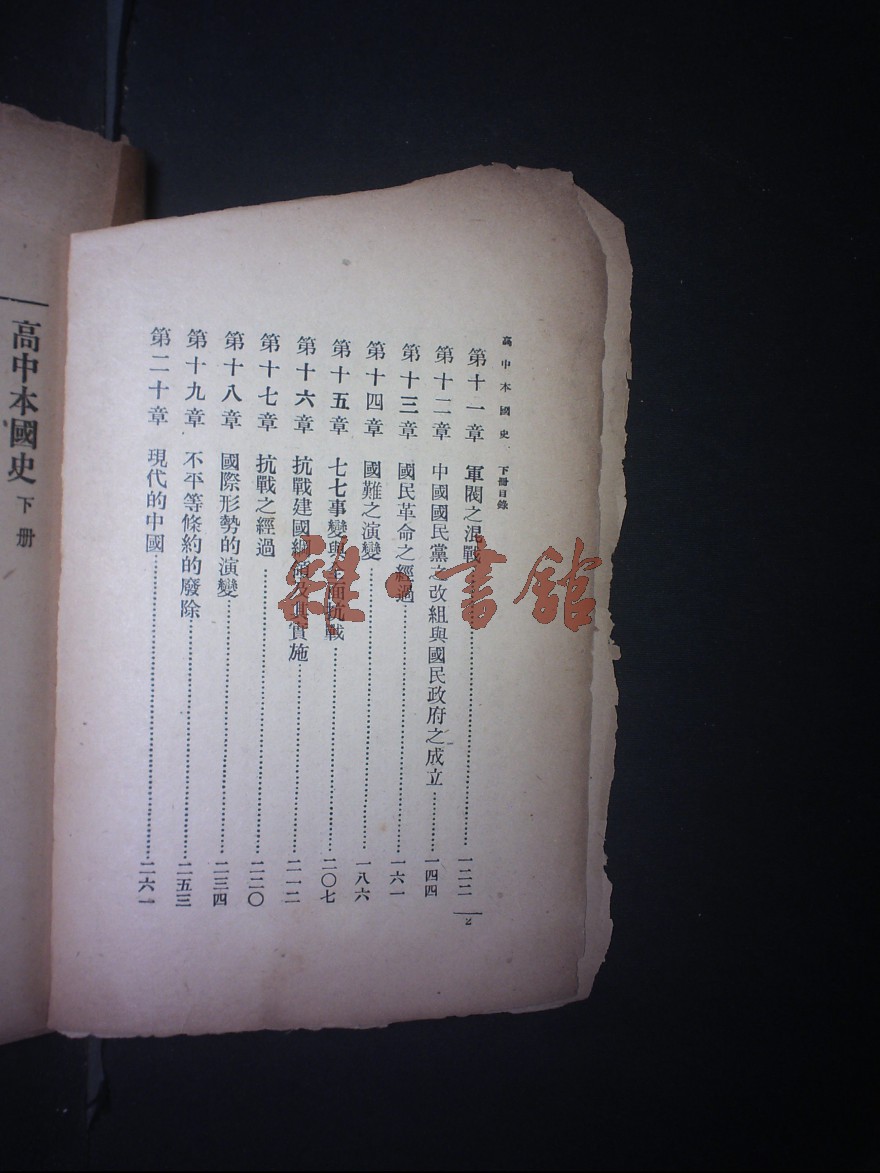 高中本國史 下冊目錄
第十一章 軍閥之混戰……一二二
第十二章 中國國民黨之改組與國民政府之成立……一四四
第十三章 國民革命之經過……一六一
第十四章 國難之演變……一八六
第十五章 七七事變與全面抗戰……二〇七
第十六章 抗戰建國綱領及其實施……二一二
第十七章 抗戰之經過……二二〇
第十八章 國際形勢的演變……二三四
第十九章 不平等條約的廢除……二五三
第二十章 現代的中國……二六一
2
高中本國史 下册
雜·書館